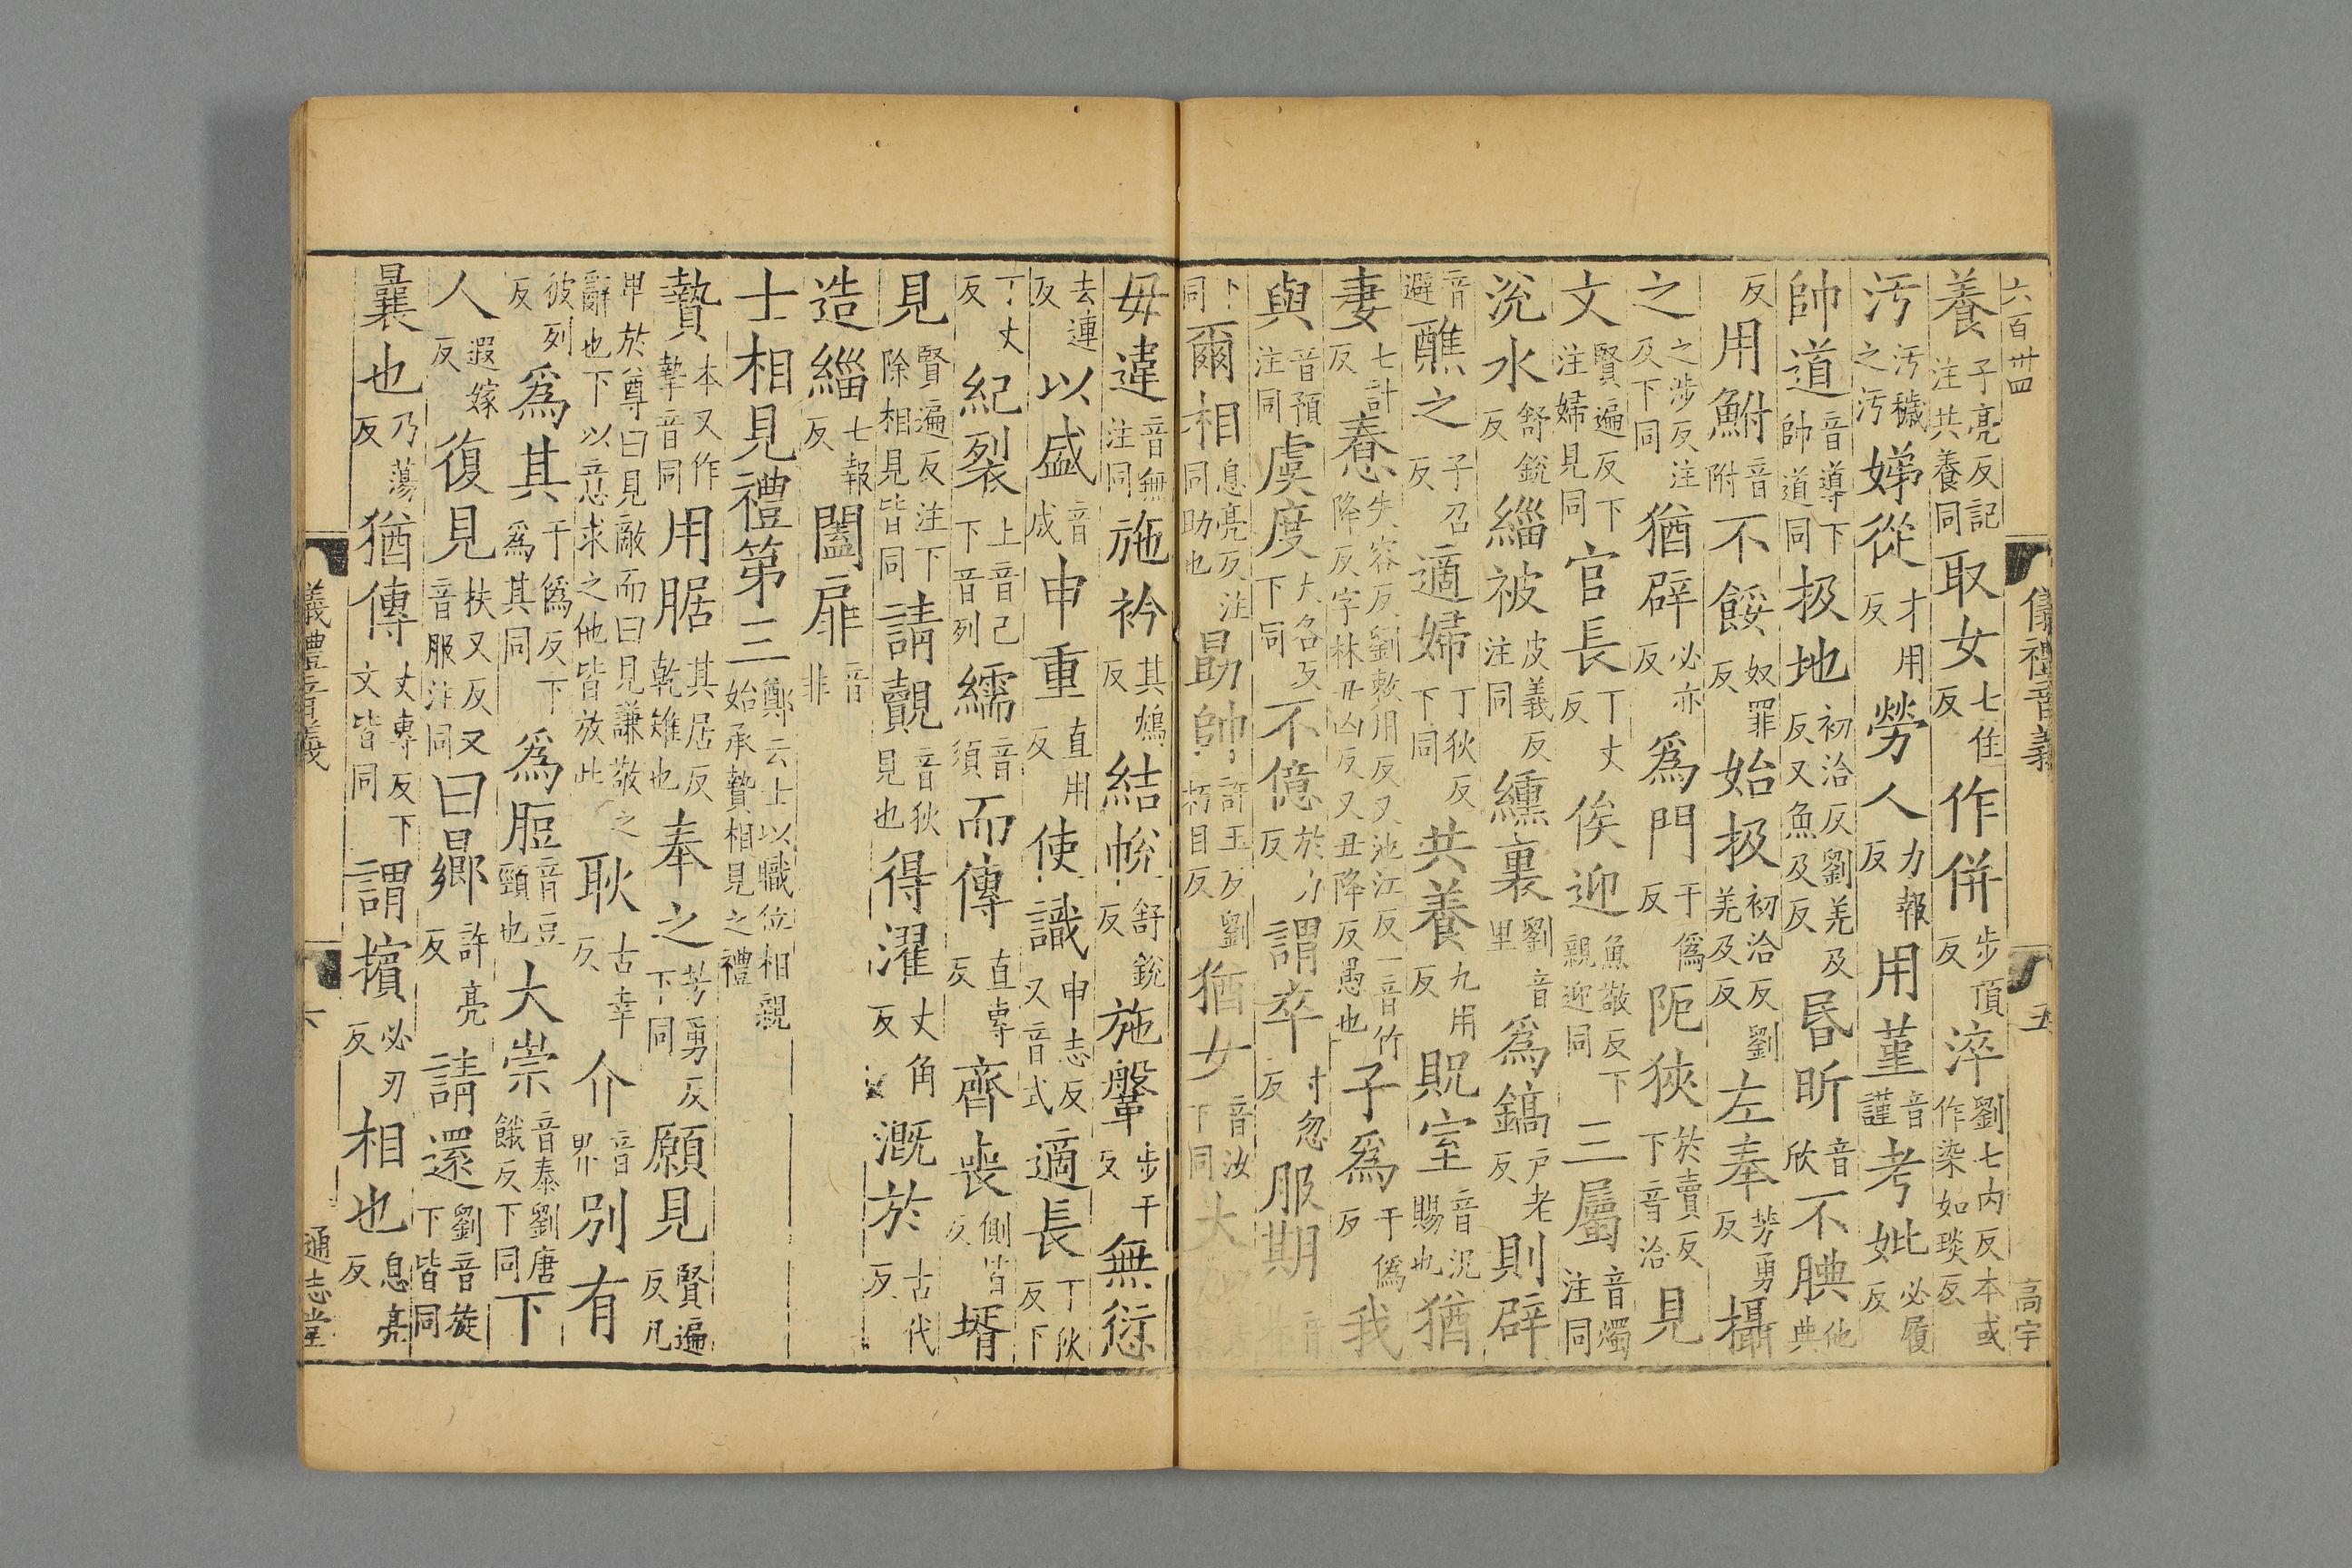 六百卅四 儀禮音義 五 高宇
養子亮反記注共養同取女七住反作併步頂反淬劉七内反本或作染如琰反
汚汚穢之汚娣從才用反勞人力報反用菫音謹考妣必履反
帥道音導下帥道同扱地初洽反劉羌及反又魚及反昏昕音欣不腆他典
反用鮒音附不餒奴罪反始扱初洽反劉羌及反左奉芳勇反攝
之之涉反注及下同猶辟必亦反爲門于僞反阨狹於賣反下音洽見
文賢遍反下注婦見同官長丁丈反俟迎魚敬反下親迎同三屬音燭注同
涚水舒銳反緇被皮義反注同纁裏劉音里爲鎬戸老反則辟
音避醮之子召反適婦丁狄反下同共養九用反貺室音況賜也猶
妻七計反惷失容反劉敕用反又池江反一音竹降反字林丑凶反又丑降反愚也子爲于僞反我
與音預注同虞度大各反下同不億於力反謂卒寸忽反服期
下同爾相息亮反注同助也勗帥許玉反劉朽目反猶女音汝下同大
毋違音無注同施衿其鴆反結帨舒銳反施鞶步干反無愆
去連反以盛音成申重直用反使識申志反又音式適長丁狄反下
丁丈反紀裂上音己下音列繻音須而傳直専反齊喪側皆反壻
見賢遍反注下除相見皆同請覿音狄見也得濯丈角反溉於古代反
造緇七報反闔扉音非
士相見禮第三鄭云士以職位相親始承贄相見之禮
贄本又作摯音同用腒其居反乾雉也奉之芳勇反下同願見賢遍反凡
卑於尊曰見敵而曰見謙敬之辭也下以意求之他皆放此耿古幸反介音界别有
彼列反爲其于僞反下爲其同爲脰音豆頸也大崇音泰劉唐餓反下同下
人遐嫁反復見扶又反又音服注同曰鄉許亮反請還劉音旋下皆同
曩也乃蕩反猶傳丈專反下文皆同謂擯必刃反相也息亮反
儀禮音義 六 通志堂